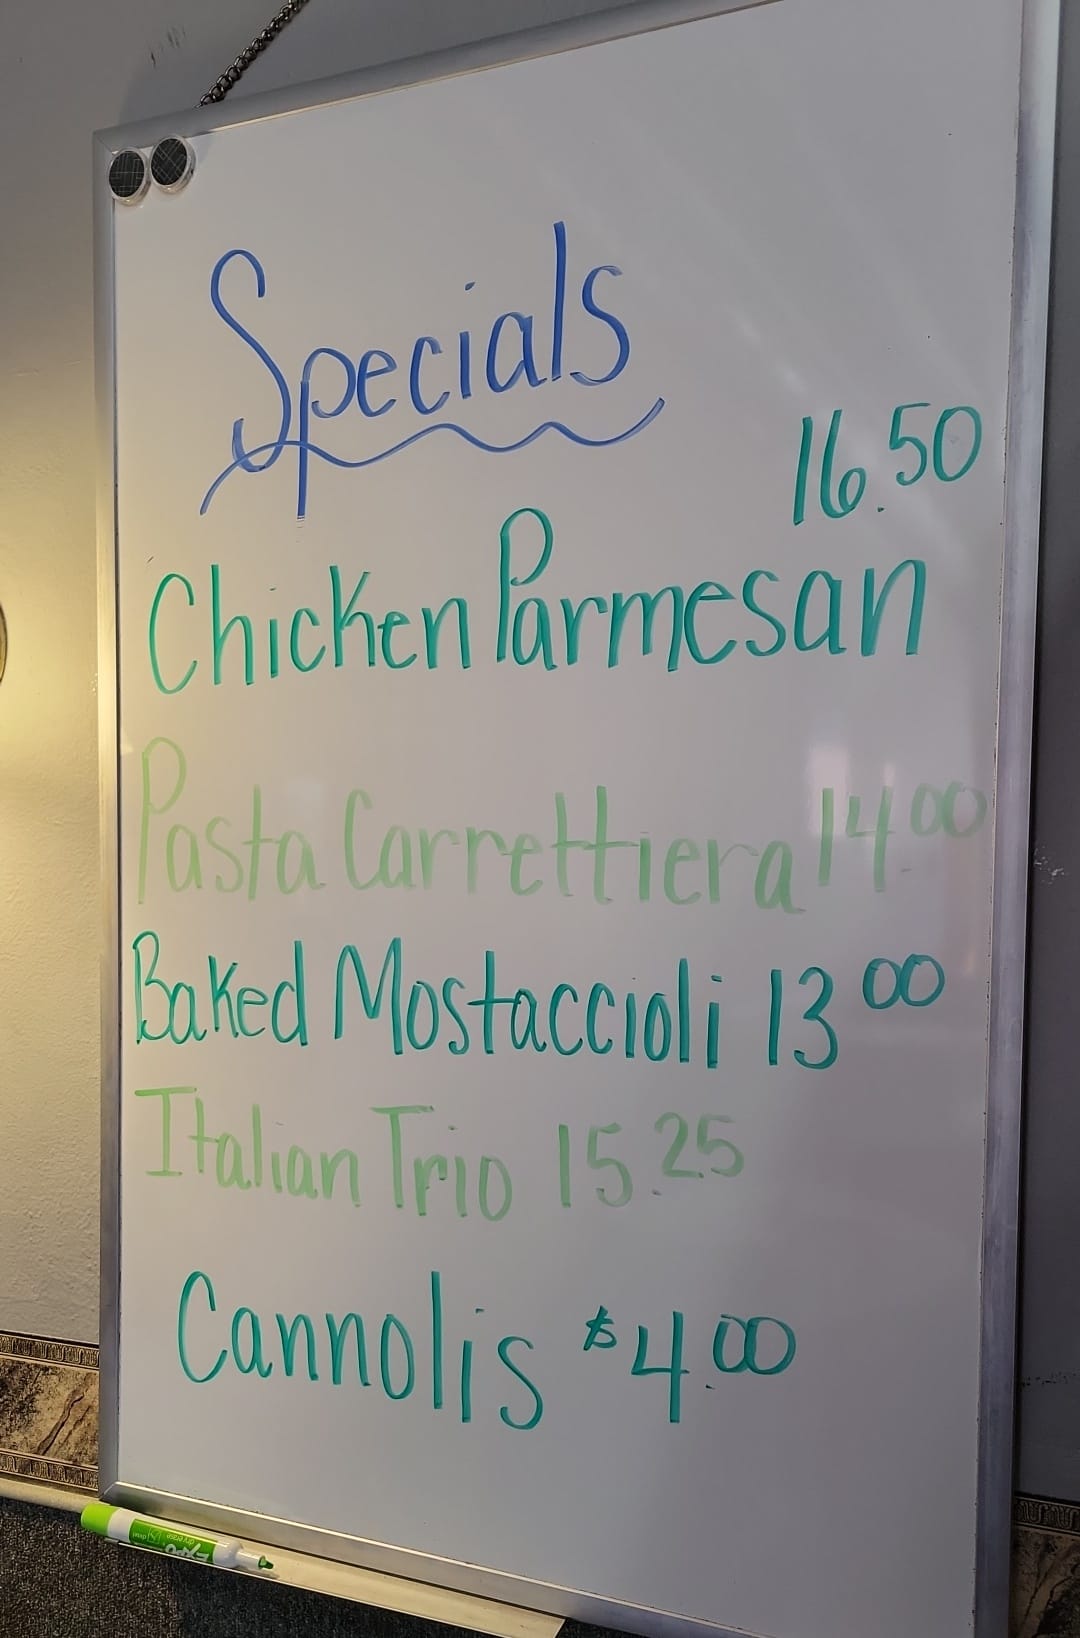 Specials
16.50
Chicken Parmesan
Pasta Carrettiera 14.00
Baked Mostaccioli 13 00
Italian Trio 15.25
Cannolis $4.00
EXPO
dry erase